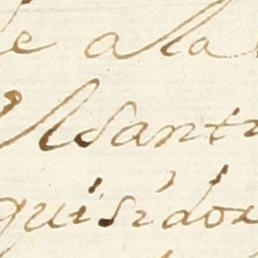 e a la
El Santo
quisidor